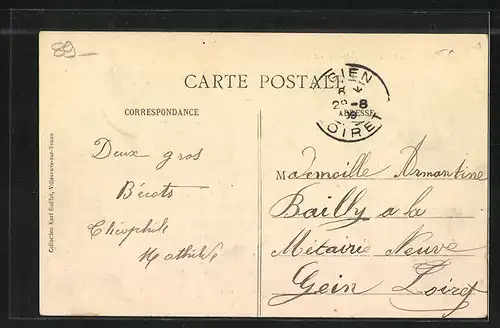 89-
CARTE POSTALE
GIEN
6
29-8
09
LOIRET
CORRESPONDANCE
ADRESSE
Deux gros
Bécots
Théophile
Mathilde
Mademoille Armantine
Bailly a la
Métairie Neuve
Gein Loiret
Collection Karl Guillot, Villeneuve-sur-Yonne